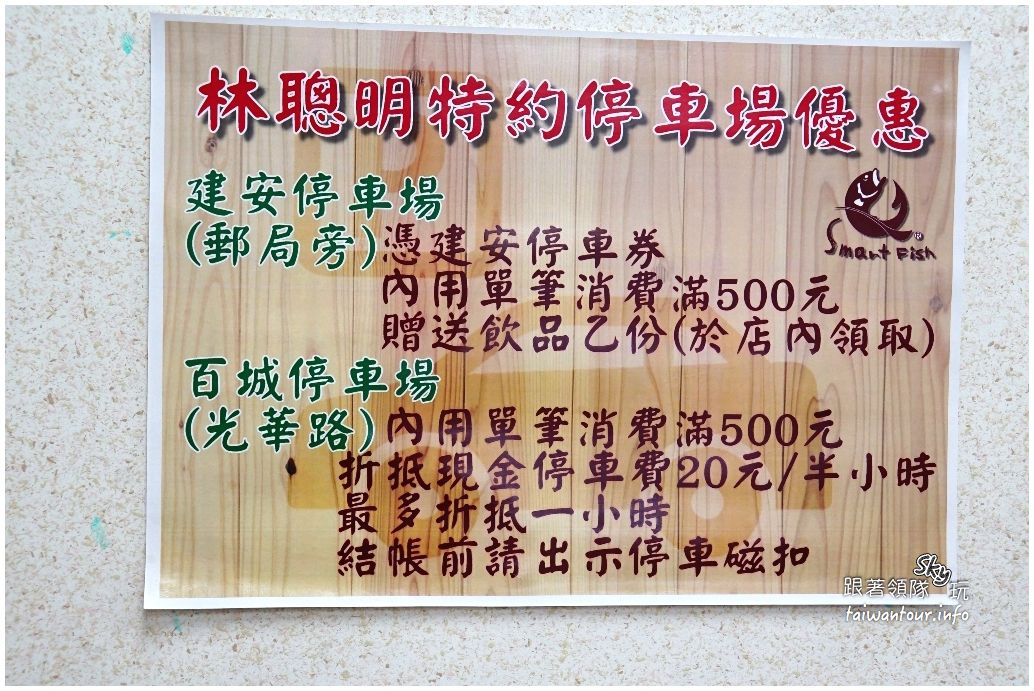 林聰明特約停車場優惠
建安停車場
(郵局旁)憑建安停車券
內用單筆消費滿500元
贈送飲品乙份(於店內領取)
Smart Fish
百城停車場
(光華路)內用單筆消費滿500元
折抵現金停車費20元/半小時
最多折抵一小時
結帳前請出示停車磁扣
跟著領隊Sky玩
taiwantour.info